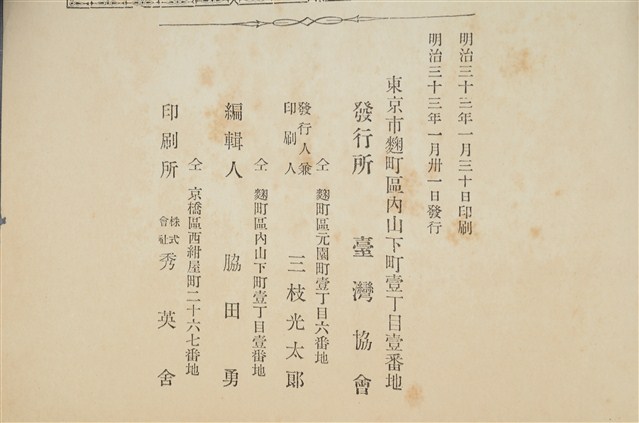 明治三十三年一月三十日印刷
明治三十三年一月卅一日發行
東京市麴町區內山下町壹丁目壹番地
發行所 臺灣協會
仝 麴町區元園町壹丁目六番地
發行人兼印刷人 三枝光太郎
仝 麴町區內山下町壹丁目壹番地
編輯人 脇田勇
仝 京橋區西紺屋町二十六七番地
印刷所 株式會社 秀英舍